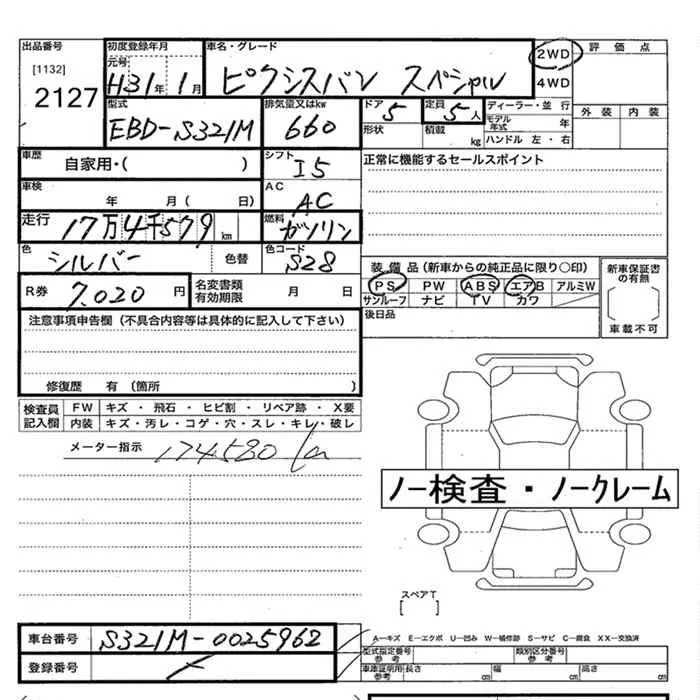 出品番号 初度登録年月 車名・グレード 2WD 評価点
[1132] 元号
2127 H31年 1月 ピクシスバン スペシャル 4WD
型式 排気量又はkw ドア 定員 ディーラー・並行 外装 内装
EBD-S321M 660 5 5人 モデル年式 年
形状 積載 kg ハンドル 左・右
車歴 自家用・( ) シフト I5 正常に機能するセールスポイント
車検 年 月( 日) AC AC
走行 17万4千579km 燃料 ガソリン
色 シルバー 色替 色コード S28
装備品(新車からの純正品に限り〇印) 新車保証書の有無
R券 7.020円 名変書類有効期限 月 日 PS PW ABS エアB アルミW
サンルーフ ナビ TV カワ 車載不可
注意事項申告欄(不具合内容等は具体的に記入して下さい) 後日品
修復歴 有(箇所 )
検査員記入欄 FW キズ・飛石・ヒビ割・リペア跡・X要
内装 キズ・汚レ・コゲ・穴・スレ・キレ・破レ
メーター指示 174580
ノー検査・ノークレーム
スペアT
[ ]
車台番号 S321M-0025962 A―キズ E―エクボ U―凹み W―補修跡 S―サビ C―腐食 XX―交換済
登録番号 型式指定番号 参考 類別区分番号 参考
車庫証明用 参考 長さ cm 幅 cm 高さ cm